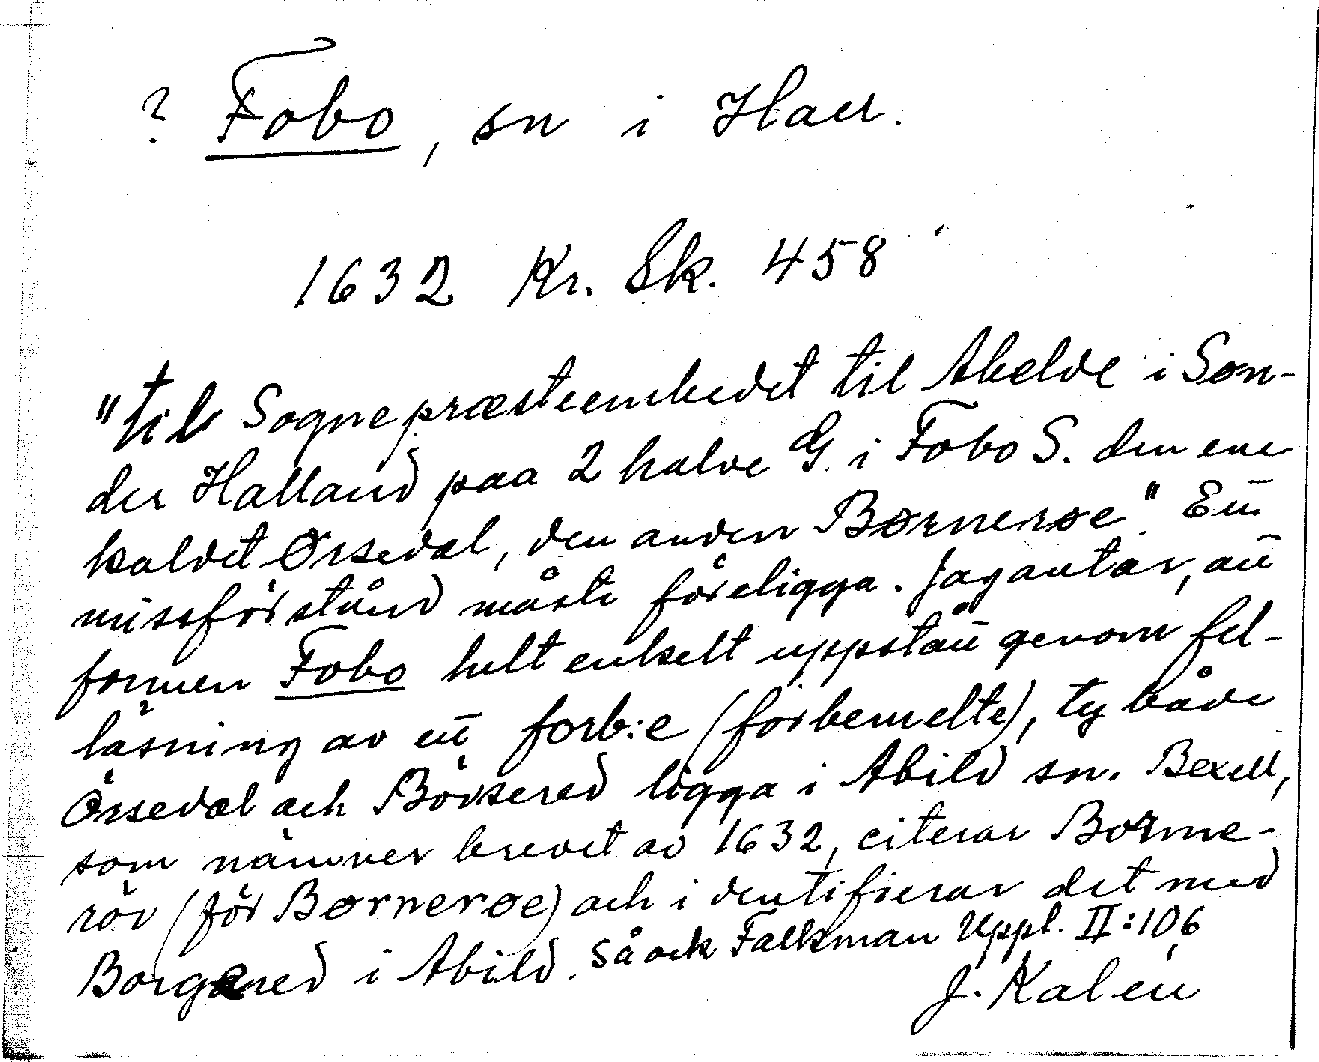 ? Fobo, sn i Hall.
1632 Kr. Sk. 458
"til Sognepræsteembedet til Abelde i Søn-
der Halland paa 2 halve G. i Fobo S. den ene
kaldet Ørsedal, den anden Børnerøe". Ett
missförstånd måste föreligga. Jag antar, att
formen Fobo helt enkelt uppstått genom fel-
läsning av ett forb:e (forbemelte), ty både
Örsedal och Börsered ligga i Abild sn. Bexell,
som nämner brevet av 1632, citerar Borne-
röv (för Børnerøe) och identifierar det med
Borgared i Abild. Så ock Falkman Uppl. II:106
J. Kalén